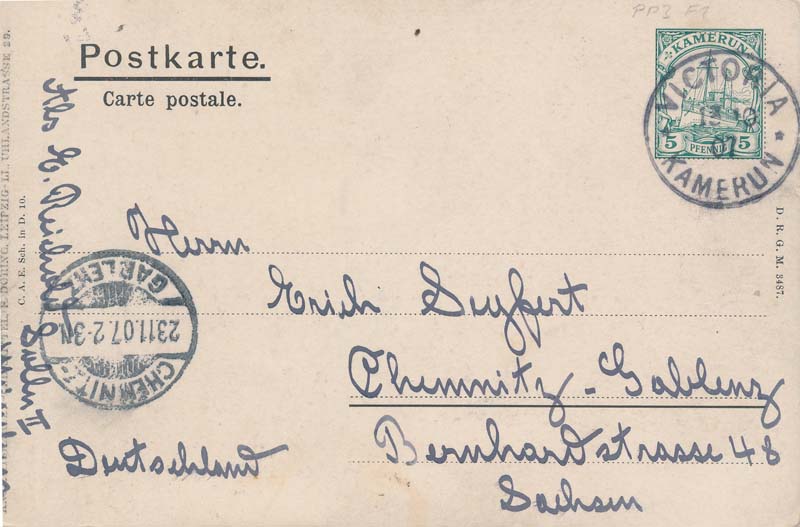 PP3 F1
Postkarte.
Carte postale.
KAMERUN
5 PFENNIG 5
VICTORIA
07
KAMERUN
Herrn
Erich Seyfert
Chemnitz-Gablenz
Bernhardstrasse 48
Sachsen
Deutschland
CHEMNITZ-
23.11.07.2-3N
GABLENZ
D. R. G. M. 3487.
Abs E. Reichnold
DÖRING, LEIPZIG-LI., UHLANDSTRASSE 29.
C. A. E. Sch. in D. 10.